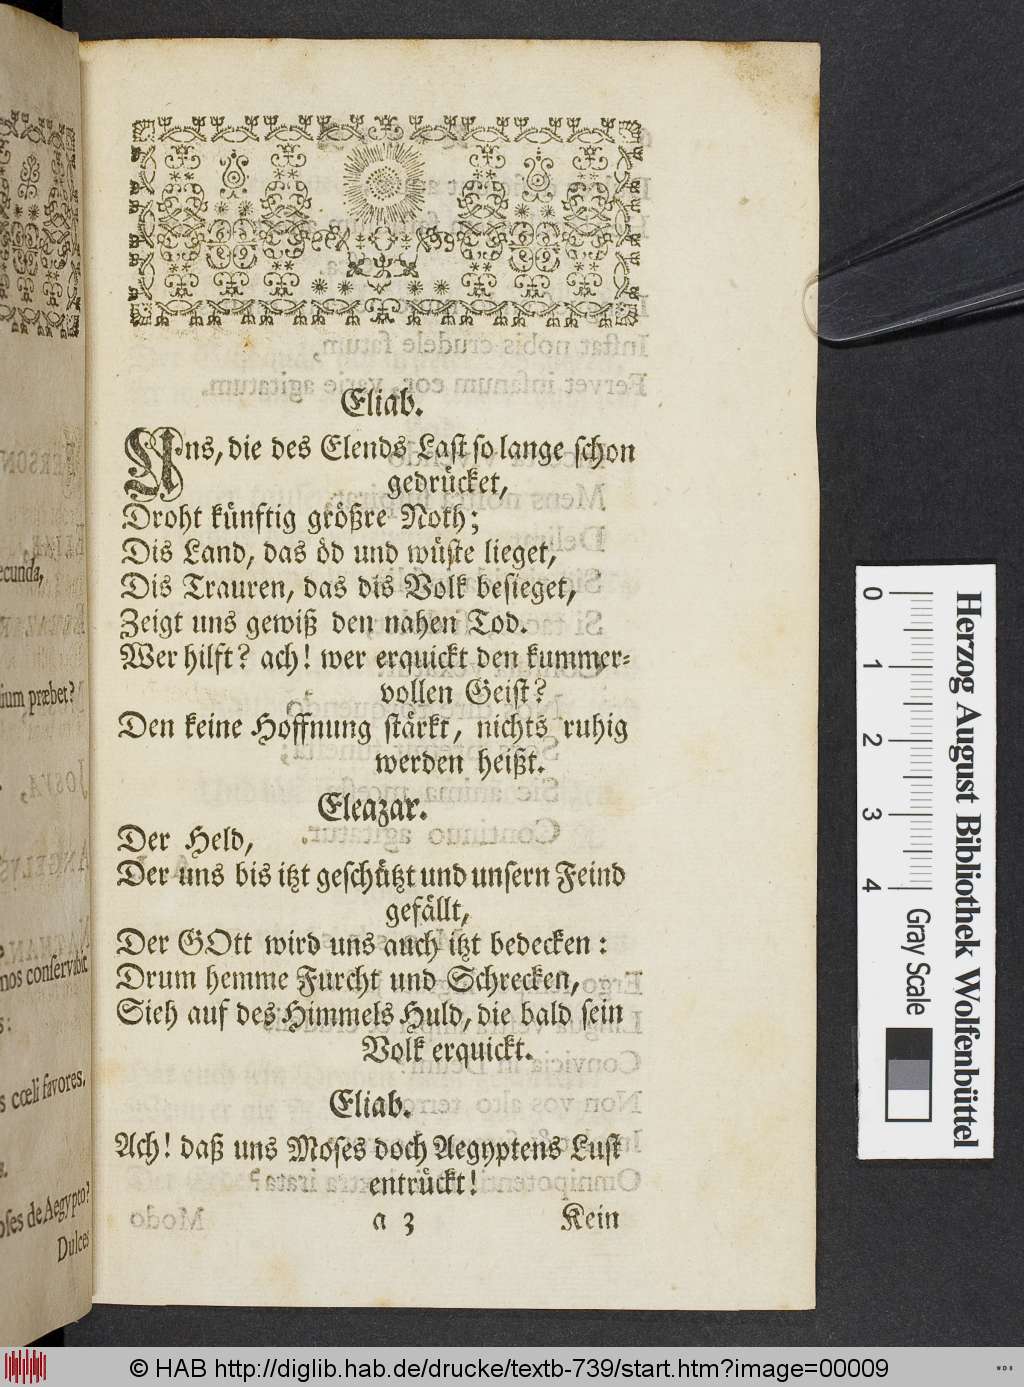 Eliab.
Uns, die des Elends Last so lange schon
gedrücket,
Droht künftig größre Noth;
Dis Land, das öd und wüste lieget,
Dis Trauren, das dis Volk besieget,
Zeigt uns gewiß den nahen Tod.
Wer hilft? ach! wer erquickt den kummer-
vollen Geist?
Den keine Hoffnung stärkt, nichts ruhig
werden heißt.
Eleazar.
Der Held,
Der uns bis itzt geschützt und unsern Feind
gefällt,
Der GOtt wird uns auch itzt bedecken:
Drum hemme Furcht und Schrecken,
Sieh auf des Himmels Huld, die bald sein
Volk erquickt.
Eliab.
Ach! daß uns Moses doch Aegyptens Lust
entrückt!
a 3 Kein
ecunda,
ium præbet?
nos conservabit.
s cœli favores.
oses de Aegypto?
Dulces
0 1 2 3 4 Gray Scale
Herzog August Bibliothek Wolfenbüttel
© HAB http://diglib.hab.de/drucke/textb-739/start.htm?image=00009